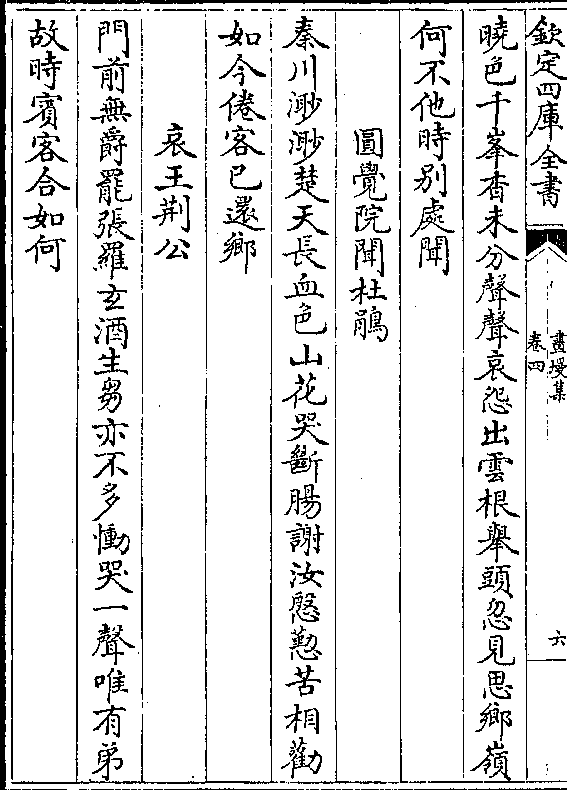 欽定四庫全書
畫墁集
卷四
六
曉色千峯杳未分聲聲哀怨出雲根舉頭忽見思鄉嶺
何不他時別處聞
圓覺院聞杜鵑
秦川渺渺楚天長血色山花哭斷腸謝汝慇懃苦相勸
如今倦客已還鄉
哀王荆公
門前無爵罷張羅玄酒生芻亦不多慟哭一聲唯有弟
故時賓客合如何